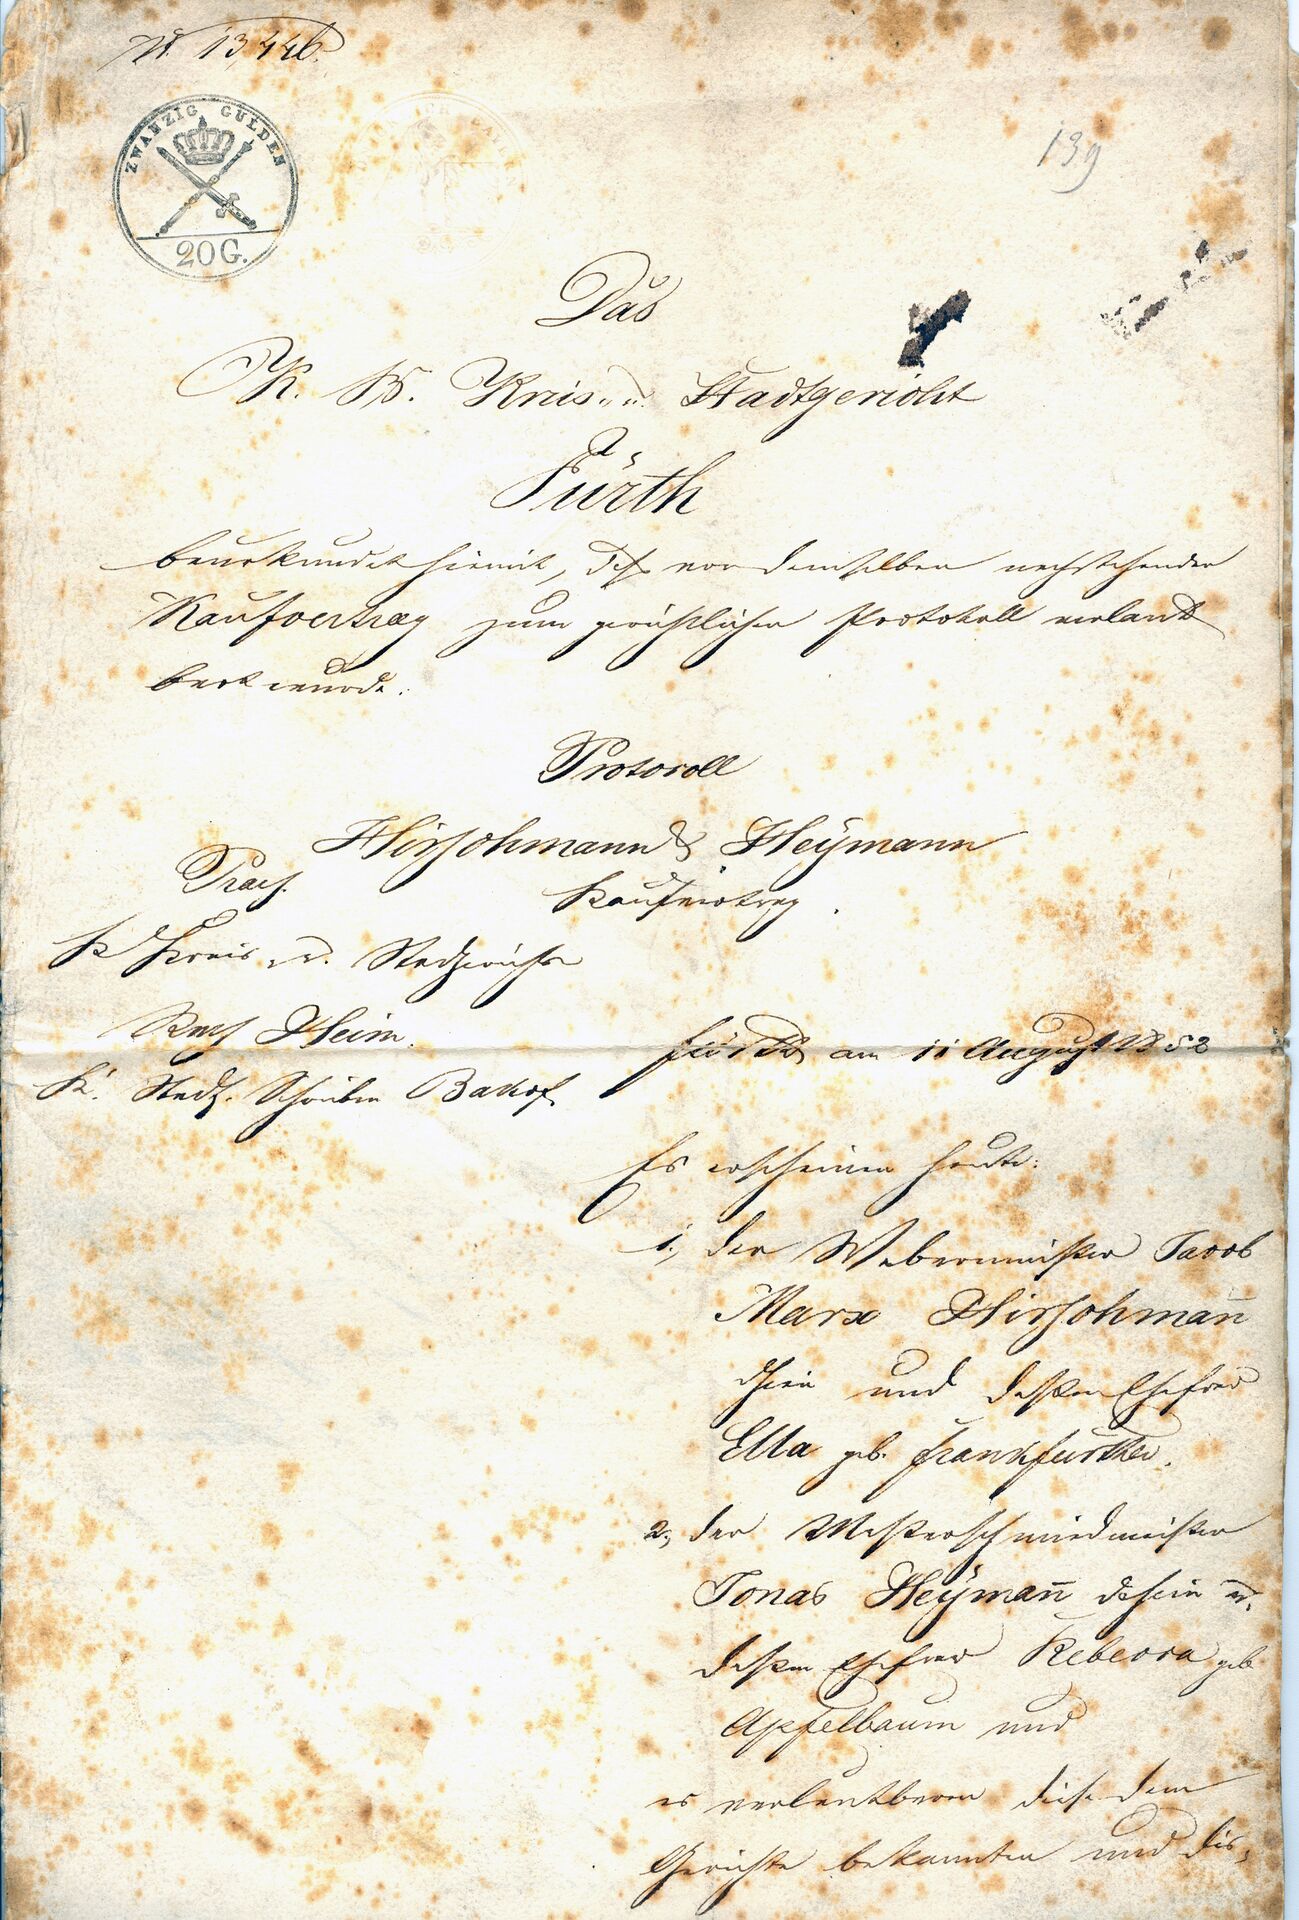 N. 13,446.
ZWANZIG GULDEN
20 G.
139
Das
K. B. Kreis- u. Stadtgericht
Fürth
beurkundet hiemit, daß vor demselben nachstehender
Kaufvertrag zum gerichtlichen Protokoll verlaut
bart wurde.
Protocoll
Hirschmann & Heÿmann
Praes.
Kaufvertrag.
K Kreis u. Stadtgerichts
Heim.
Fürth am 11 August 1858
K. Stadtg. Schreiber
Es erscheinen heute:
1., der Webermeister Jacob
Marx Hirschmann̄
dahier und dessen Ehefrau
Ella geb. Frankfurther.
2., der Messerschmiedmeister
Jonas Heÿman̄ dahier u.
dessen Ehefrau Rebecca geb
Apfelbaum und
es verlautbaren diese dem
Gerichte bekannten und dis-